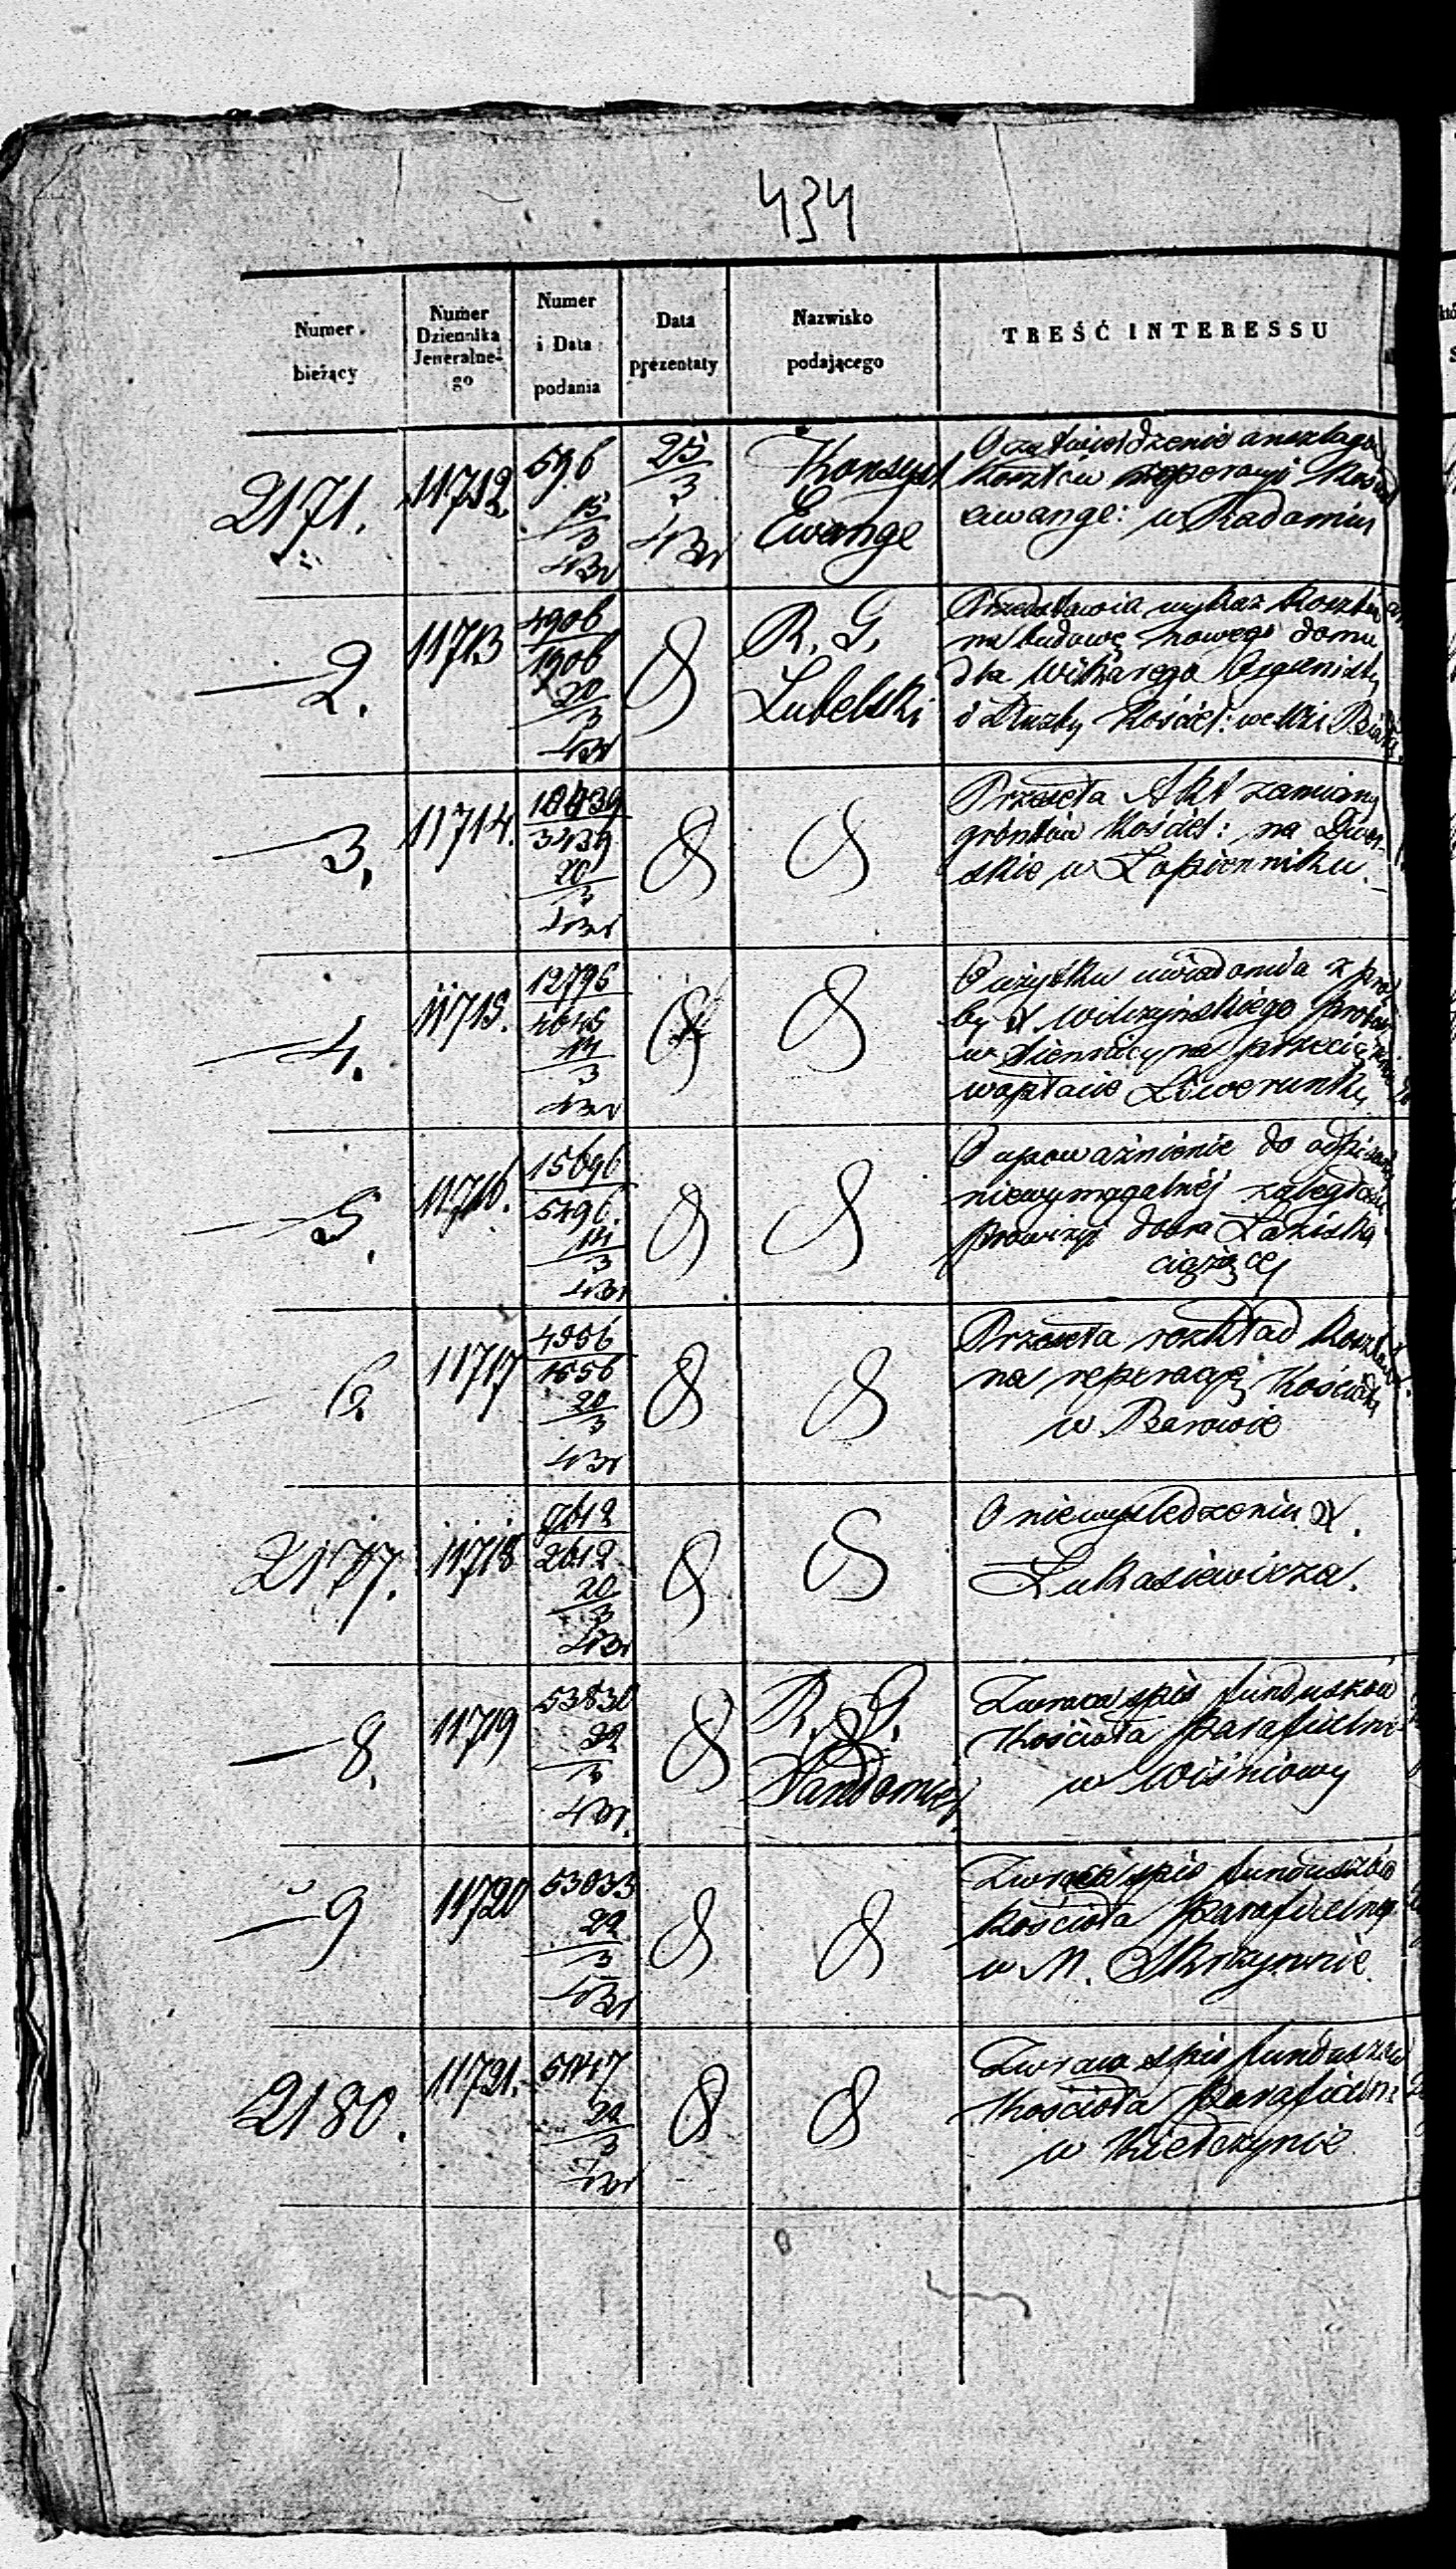 434
Numer bieżący
Numer Dziennika Jeneralnego
Numer i Data podania
Data prezentaty
Nazwisko podającego
TREŚĆ INTERESSU
2171.
11712
596
15
3
25
3
Konsyst
Ewange
O zatwierdzenie anszlagu
kosztów reperacyi Kościoł
ewange: w Radomiu
2.
11713
4906
1906
20
3
R. G.
Lubelski
Przedstawia wykaz kosztów
na budowę nowego domu
dla Wikarego Organisty
i Służby Kościel: we Wsi
3.
11714.
10439
3439
20
3
Przeseła Akt zamiany
gróntów Kościel: na Dwor-
skie w Łopienniku.
4.
11715.
12795
4645
14
3
O użytku uwiadomia z proś
by X Wilczyńskiego
w Siennicy na
wypłacie Liwerunku
5.
11716.
15696
5496.
14
3
O upoważnienie do odpisania
niewymagalnéj zaległości
prowizyi dobra Łaziska
ciążącej
6.
11717
4556
1556
20
3
Przeseła rozkład kosztów
na reperacyę Kościoła
w
2177.
11718
9612
2612
20
3
O niewyśledzeniu X.
Łukasiewicza.
8.
11719
53830
22
3
R. G.
Sandomier
Zwraca spis funduszów
Kościoła parafielne
w Wiśniowy
9
11720
53033
22
3
Zwraca spis funduszów
Kościoła parafielneg
w M. Skrzynnie.
2180.
11721.
51147
22
3
Zwraca spis funduszów
Kościoła parafieln:
w Kiełczynie